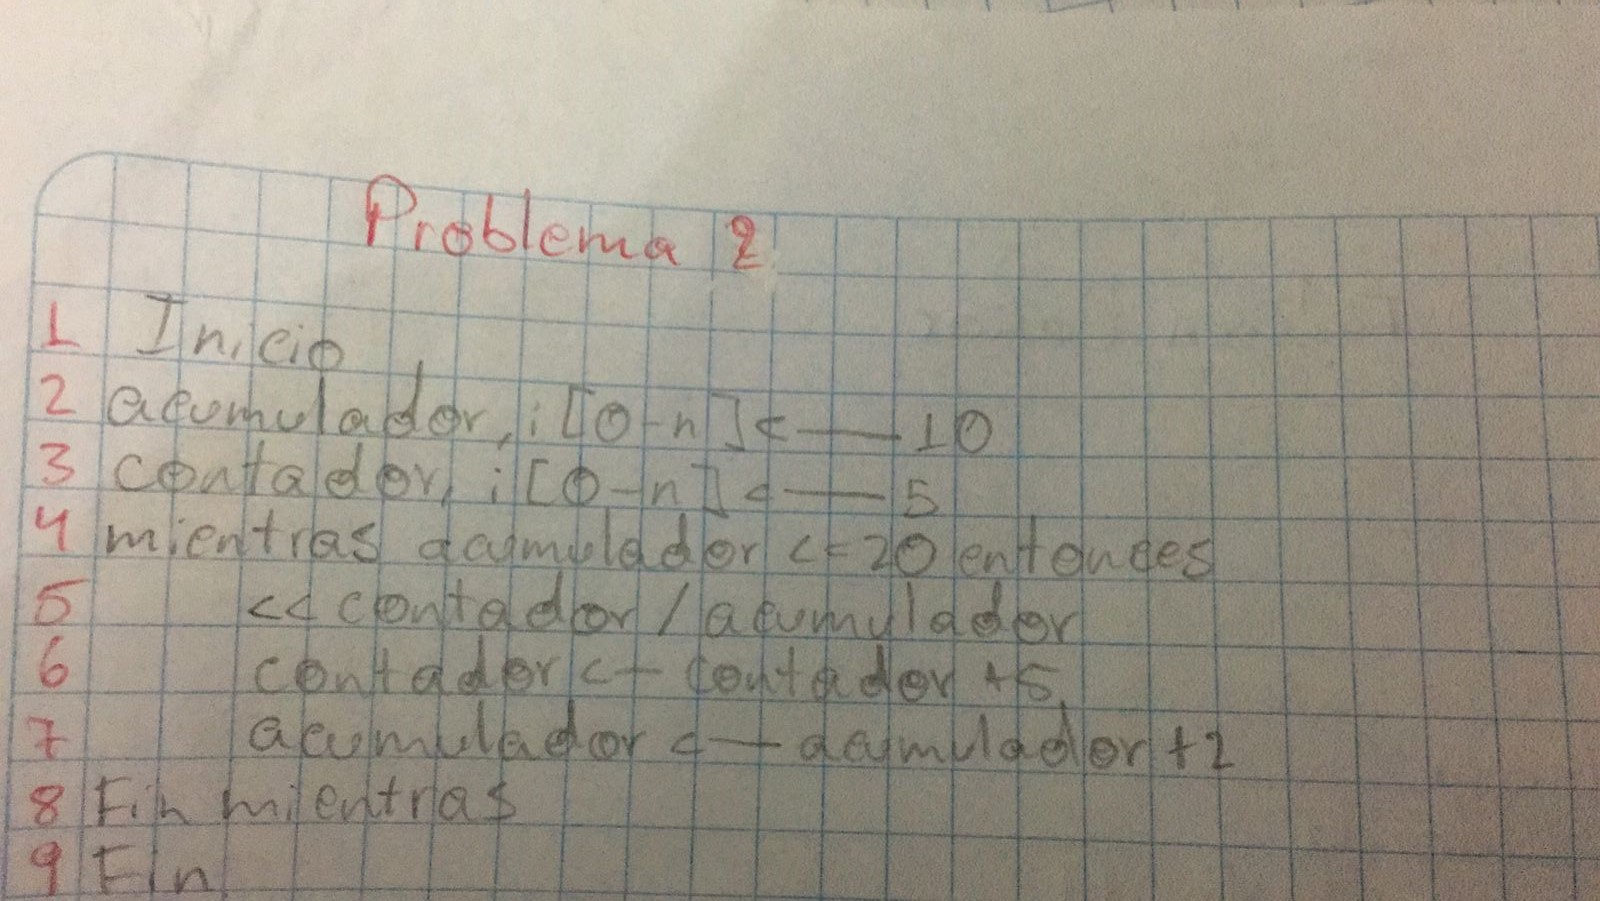 Problema 2
1 Inicio
2 acumulador, i [0-n] <—— 10
3 contador, i [0-n] <—— 5
4 mientras acumulador <= 20 entonces
5 << contador / acumulador
6 contador <— contador + 5
7 acumulador <— acumulador + 2
8 Fin mientras
9 Fin